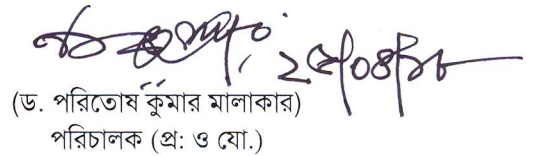 ২৫/০৪/১৮
(ড. পরিতোষ কুমার মালাকার)
পরিচালক (প্র: ও যো.)